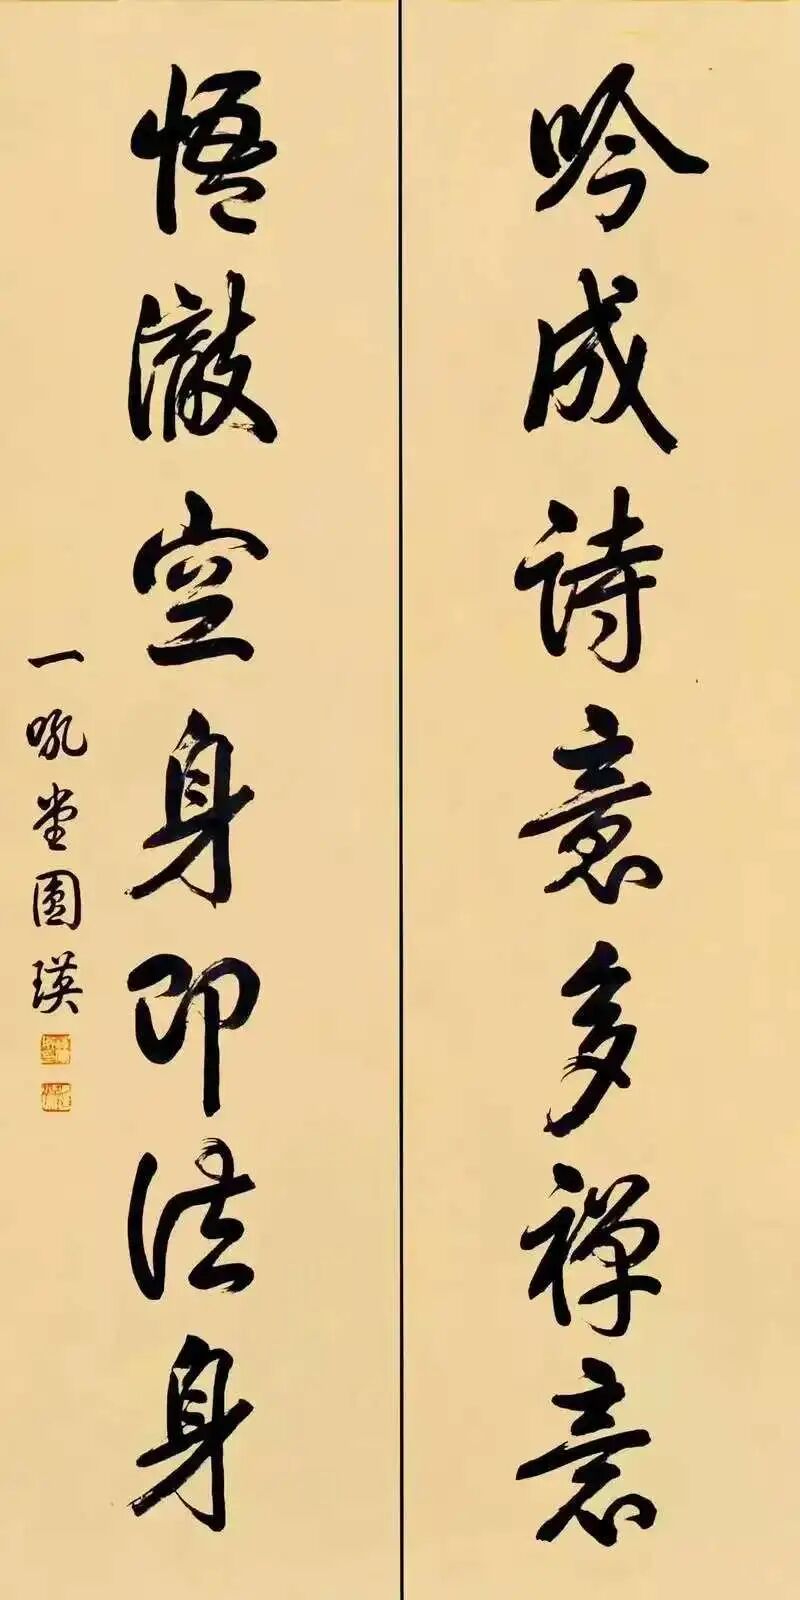 吟成詩意多禅意
悟澈空身即法身
一吼堂圓瑛